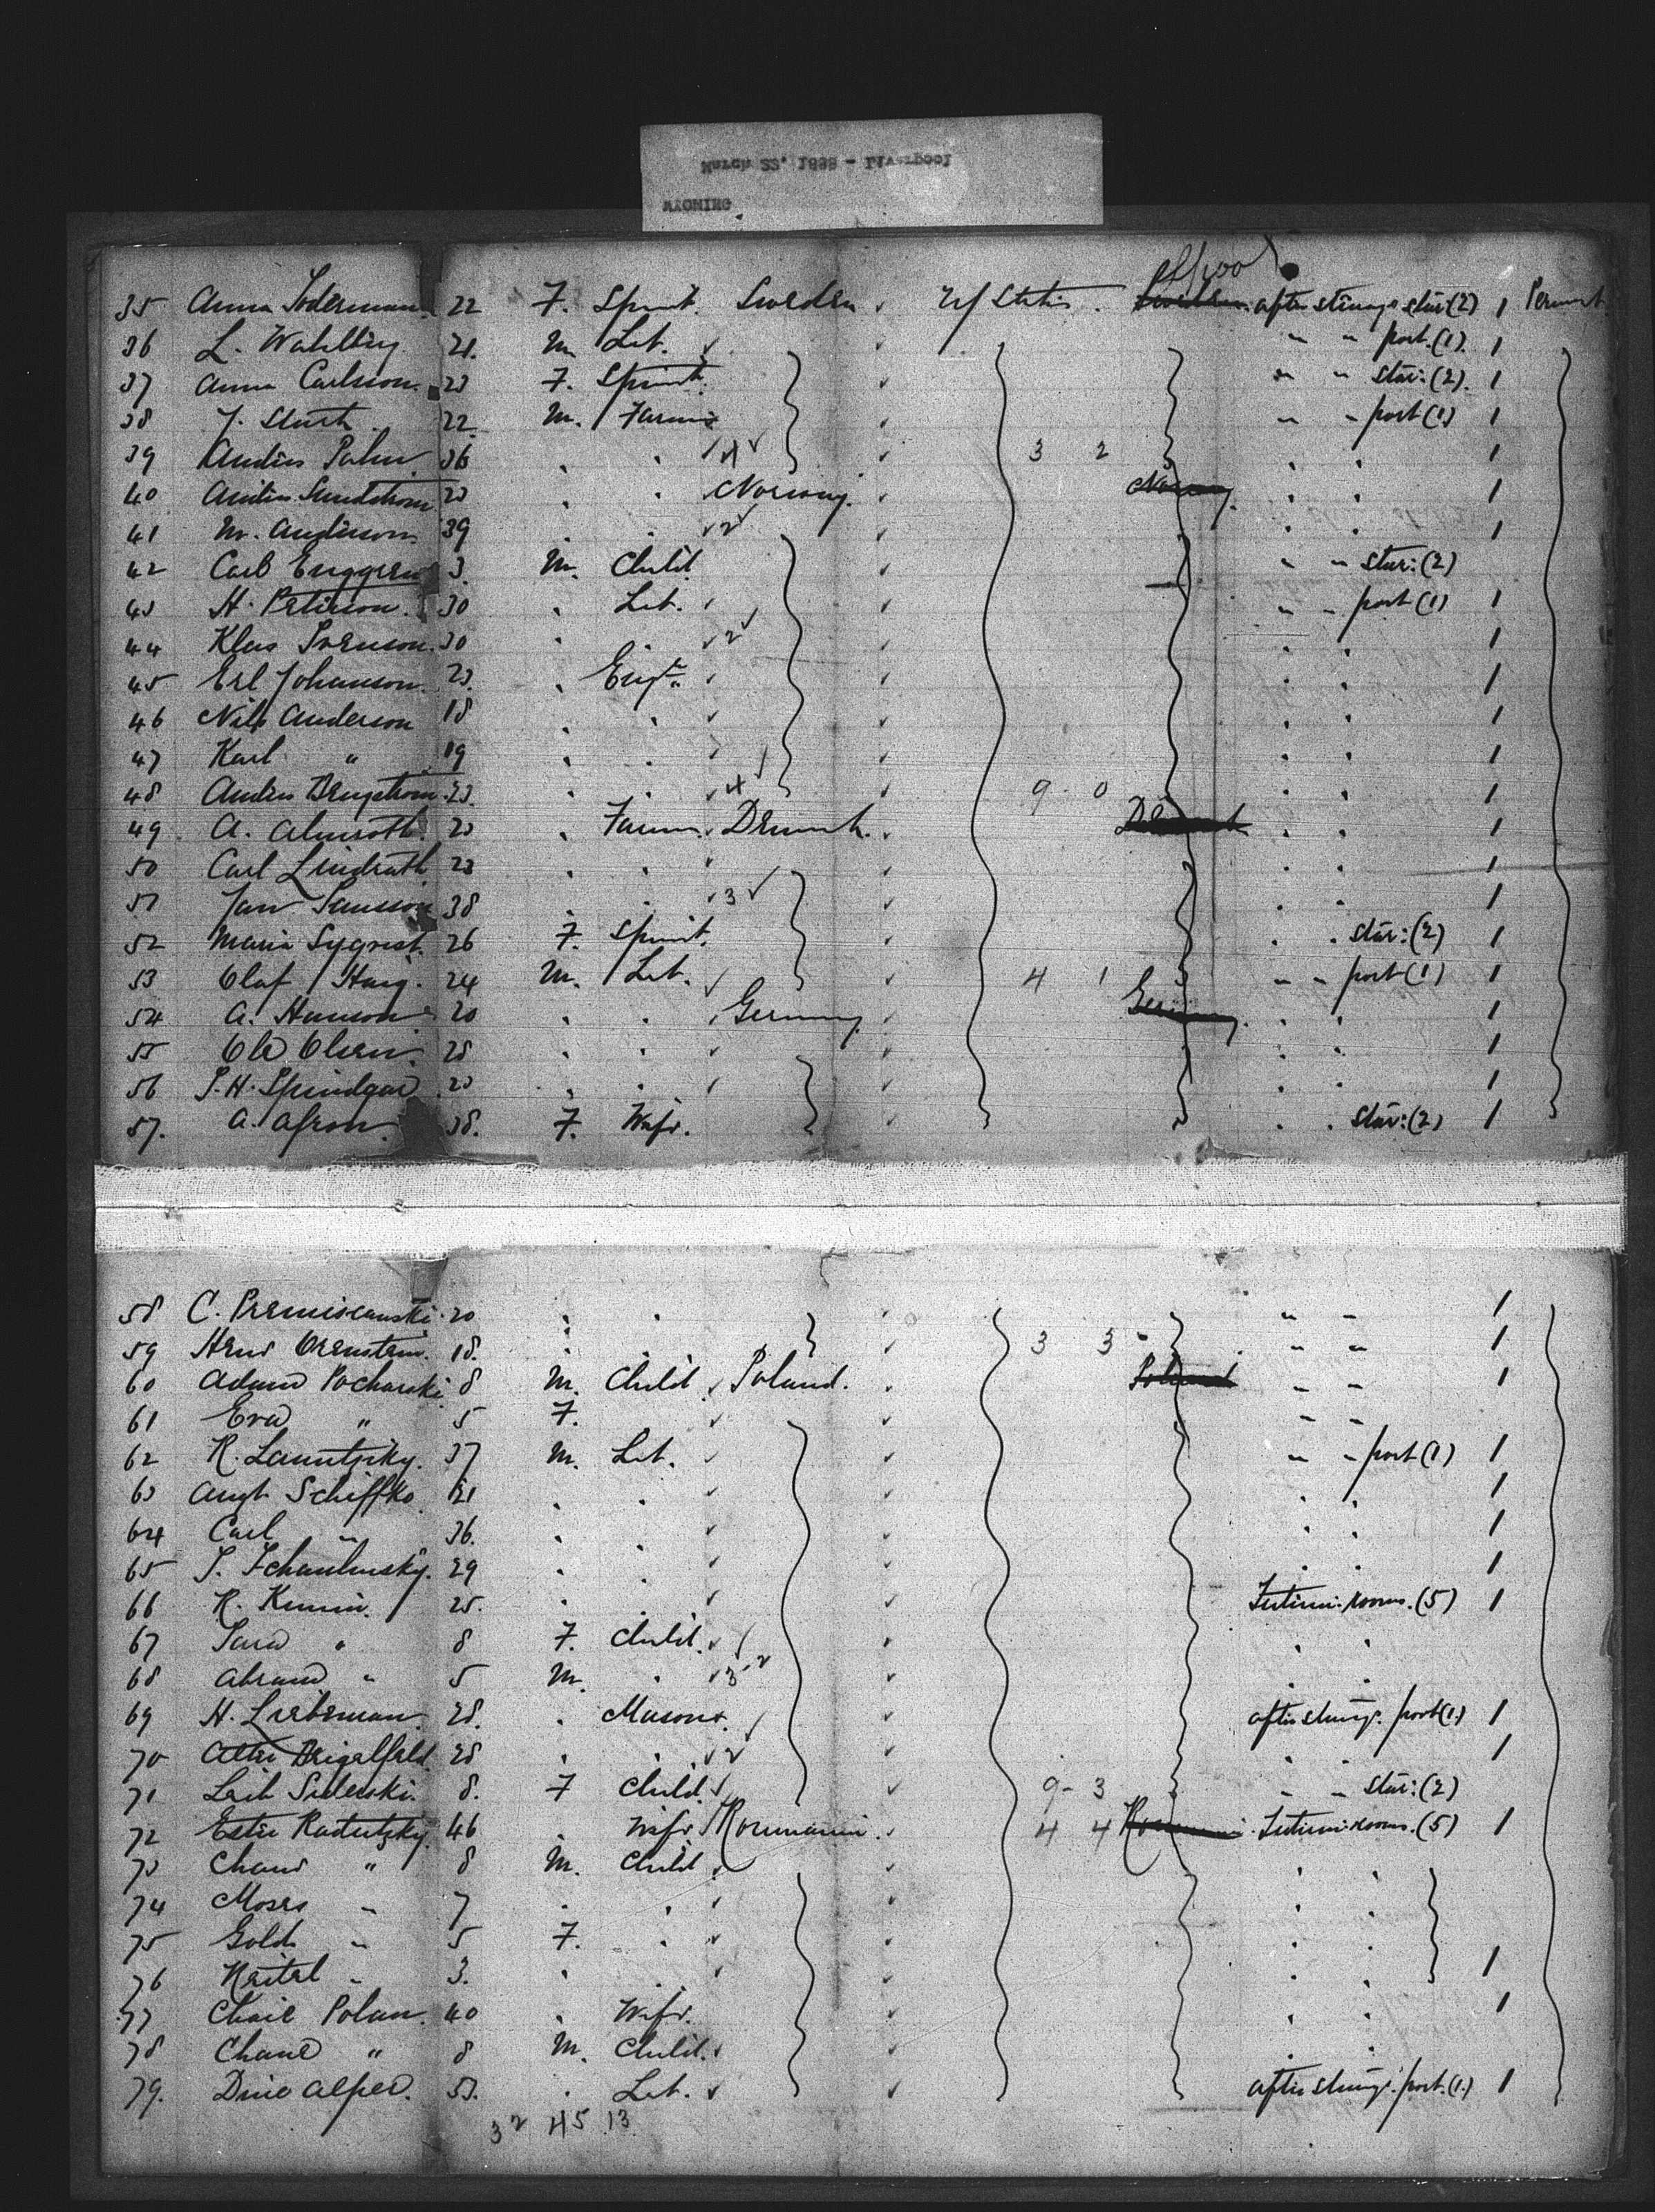 WYOMING
March 22, 1888 - Liverpool
L/pool
35 Anna Soderman 22 F. Spinst. Sweden U/States Sweden after steerage star: (2) 1 Permnt
36 L. Wahlberg 21. M Lab. " " port. (1). 1
37 Anna Carlsson. 23 F. Spinst. " " star: (2). 1
38 J. Sturt 22 M. Farmer " " port (1) 1
39 Anders Palm 36 " " 4 3 2 " " 1
40 Anders Sundstrom 23 " " Norway. Norway " " 1
41 M. Anderson. 39 " " 2 1
42 Carl Enggren 3. M. Child " " star: (2)
43 H. Peterson. 30 " Lab. " " port (1) 1
44 Klas Svenson. 30 " 2 " " 1
45 Erl Johanson. 23. " Engr. " " 1
46 Nils Anderson 18 " " " " 1
47 Karl " 19 " " " " 1
48 Anders Bengstrom. 23. " " 4 9 - 0 " " 1
49 A. Almroth. 23 " Farmr. Denmk. Denmark " " 1
50 Carl Lindrath 23 " " 1
51 Jan Jansson 38 " " 3 " " 1
52 Maria Sygrist. 26 F. Spinst. " " star: (2) 1
53 Olaf Haig. 24 M. Lab. 4 1 " " port (1) 1
54 A. Hanson 20 " " Germany. Germany " " 1
55 Ole Olsen. 28 " " " " 1
56 S. H. Spindgar 23 " " " " 1
57. A. Afron. 38. F. Wife. " " star: (2) 1
58 C. Premiscanski. 20 " " " " 1
59 Orenstein. 18. " " 3 3 - " " 1
60 Adam Pocharski 8 M. Child Poland. Poland " " 1
61 Eva " 5 F. " "
62 R. Launtzsky. 37 M. Lab. " " port (1) 1
63 Augt Schiffko 21 " " " " 1
64 Carl " 36. " " " " 1
65 S. Schaulinsky. 29 " " " " 1
66 R. Kunin. 25. " " Interm. rooms. (5) 1
67 Sara " 8 F. Child. " "
68 Abram " 5 M. " 3-2 "
69 H. Lieberman. 28. " Masons. after steerage. port (1.) 1
70 Alter Beigelfeld 28 " " 2 " " 1
71 Leib Sidenski. 8. F Child. 9 - 3 " " star: (2)
72 Ester Radutzky. 46 " Wife Roumania. 4 4 Roumania Interm. rooms. (5) 1
73 Chane " 8 M. Child. " "
74 Moses " 7 " " " "
75 Gold " 5 F. " " "
76 Neital " 3. " " " " 1
77 Chaie Polan. 40 " Wife. " " 1
78 Chane " 8 M. Child. " "
79. Dine Alper. 53. " Lab. after steerage. port. (1.) 1
32 45 13